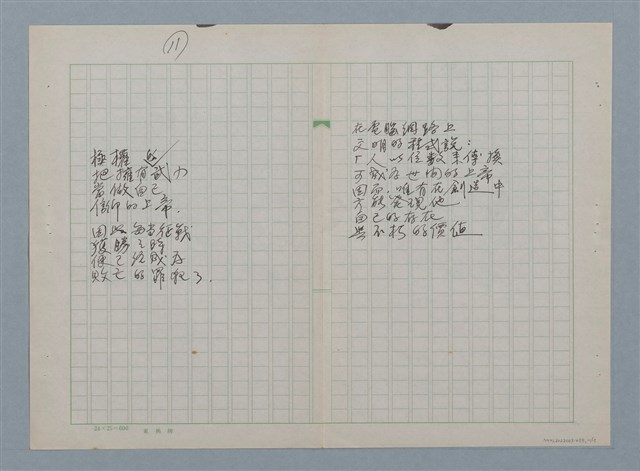 11
極權的
把擁有武力
當做自己
信仰的上帝.
因此每當征戰
獲勝之時
便已經成為
敗亡的罪犯了.
在電腦網路上
文明的程式說:
「人以位數來傳換
可成為世間的上帝
因而,唯有在創造中
方能發現他
自己的存在
與不朽的價值
24×25=600